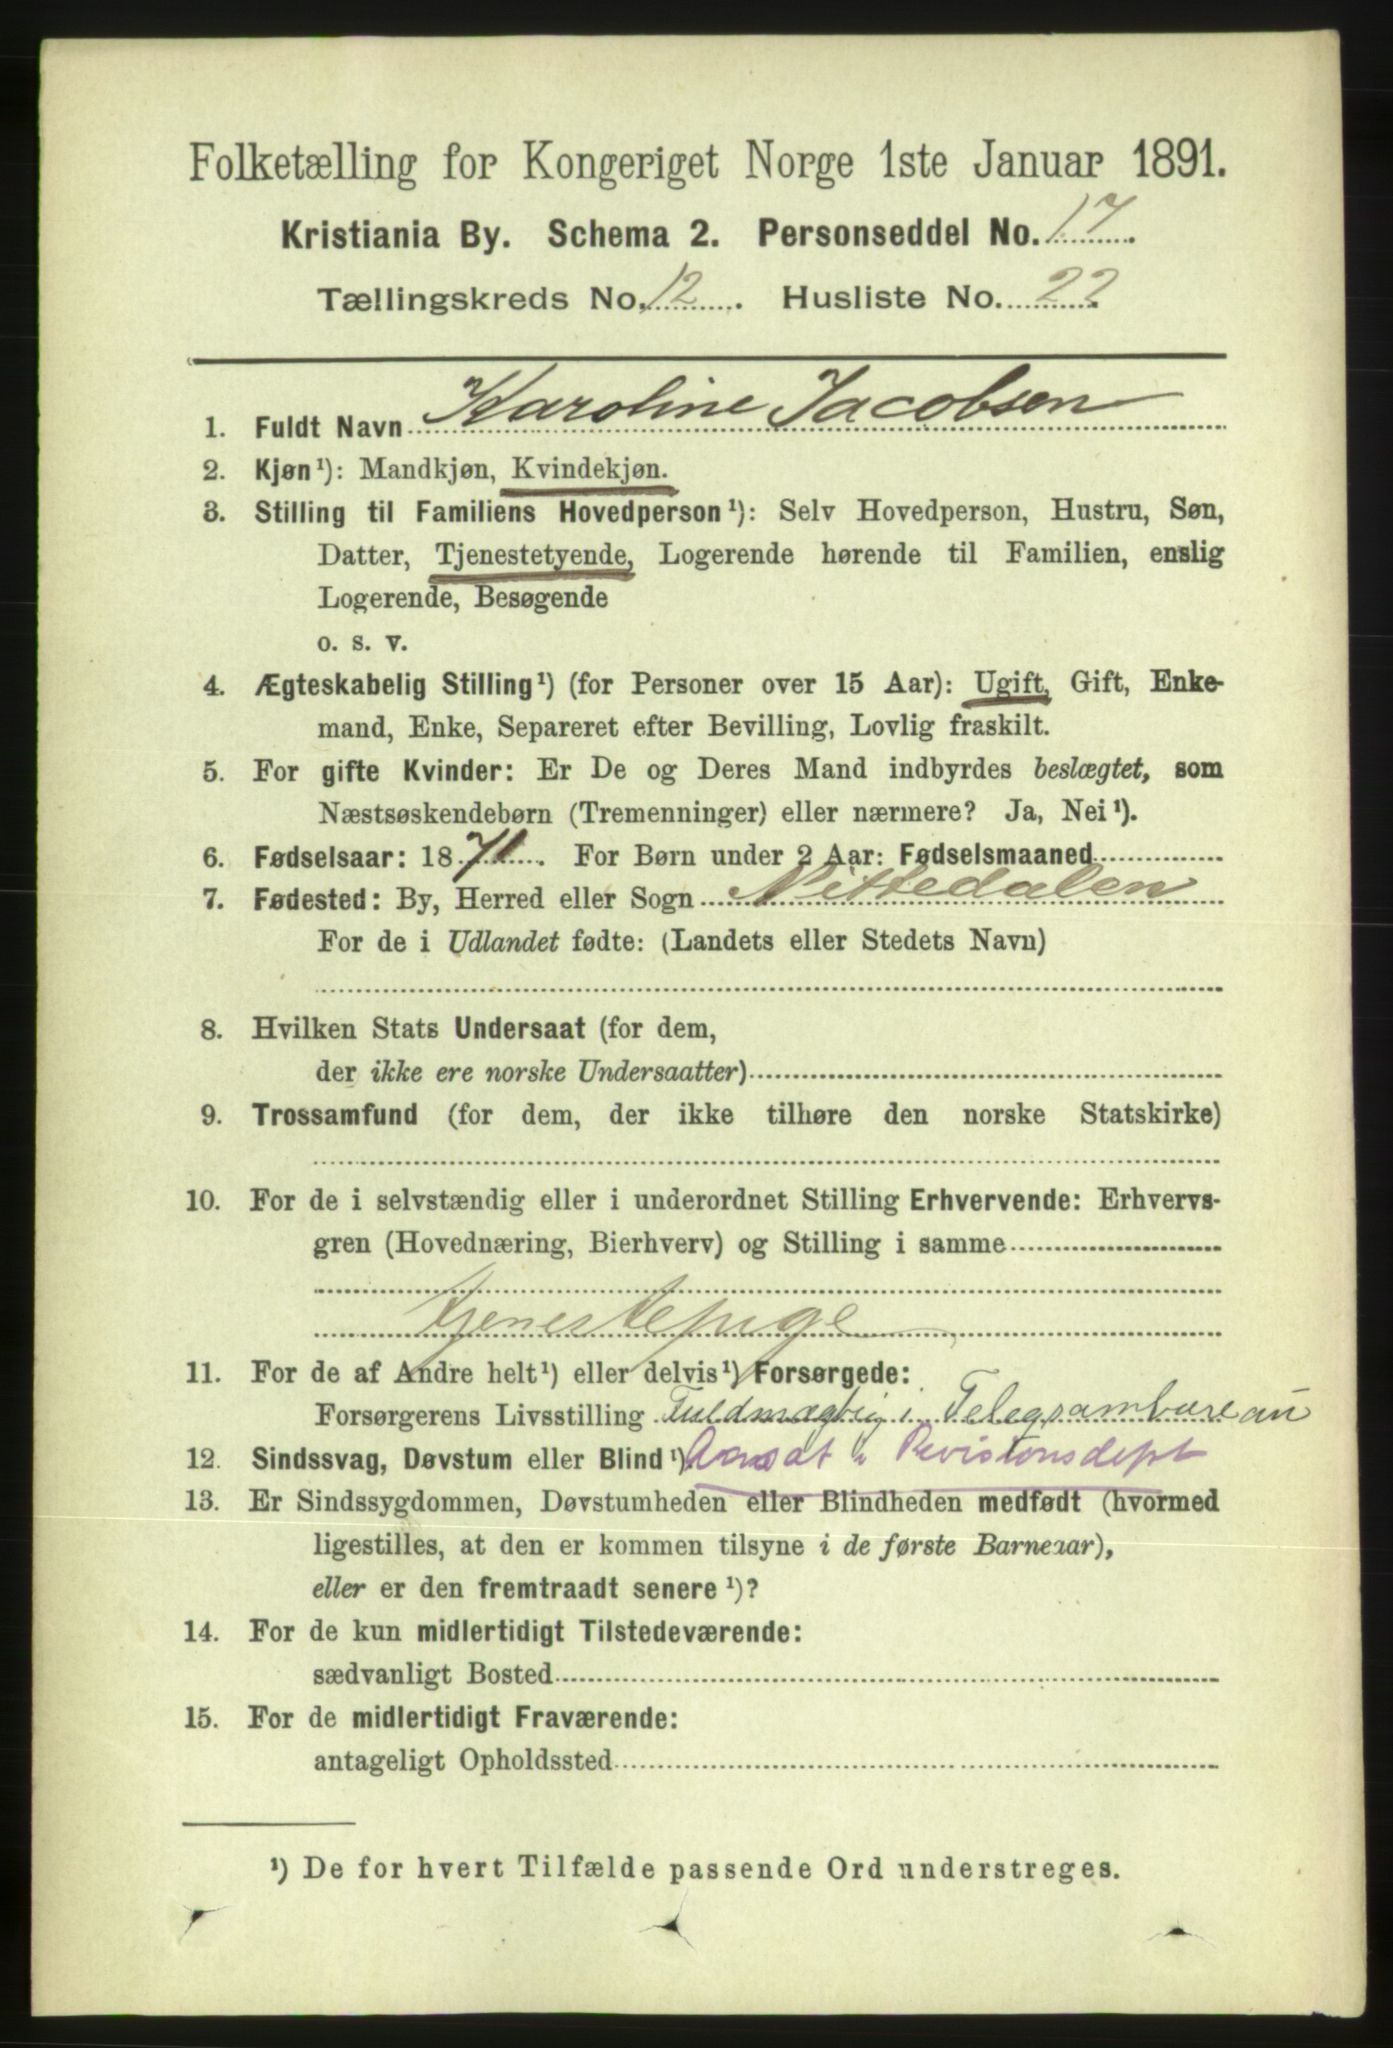 Folketælling for Kongeriget Norge 1ste Januar 1891.
Kristiania By. Schema 2. Personseddel No. 17.
Tællingskreds No. 12. Husliste No. 22.
1. Fuldt Navn Karoline Jacobsen
2. Kjøn¹): Mandkjøn, Kvindekjøn.
3. Stilling til Familiens Hovedperson¹): Selv Hovedperson, Hustru, Søn,
Datter, Tjenestetyende, Logerende hørende til Familien, enslig
Logerende, Besøgende
o. s. v.
4. Ægteskabelig Stilling¹) (for Personer over 15 Aar): Ugift, Gift, Enke-
mand, Enke, Separeret efter Bevilling, Lovlig fraskilt.
5. For gifte Kvinder: Er De og Deres Mand indbyrdes beslægtet, som
Næstsøskendebørn (Tremenninger) eller nærmere? Ja, Nei¹).
6. Fødselsaar: 1871. For Børn under 2 Aar: Fødselsmaaned
7. Fødested: By, Herred eller Sogn Nittedalen
For de i Udlandet fødte: (Landets eller Stedets Navn)
8. Hvilken Stats Undersaat (for dem,
der ikke ere norske Undersaatter)
9. Trossamfund (for dem, der ikke tilhøre den norske Statskirke)
10. For de i selvstændig eller i underordnet Stilling Erhvervende: Erhvervs-
gren (Hovednæring, Bierhverv) og Stilling i samme
tjenestepige
11. For de af Andre helt¹) eller delvis¹) Forsørgede:
Forsørgerens Livsstilling Fuldmægtig i Telegrambureau
12. Sindssvag, Døvstum eller Blind¹). Ansat i Revisionsdept
13. Er Sindssygdommen, Døvstumheden eller Blindheden medfødt (hvormed
ligestilles, at den er kommen tilsyne i de første Barneaar),
eller er den fremtraadt senere¹)?
14. For de kun midlertidigt Tilstedeværende:
sædvanligt Bosted
15. For de midlertidigt Fraværende:
antageligt Opholdssted
¹) De for hvert Tilfælde passende Ord understreges.